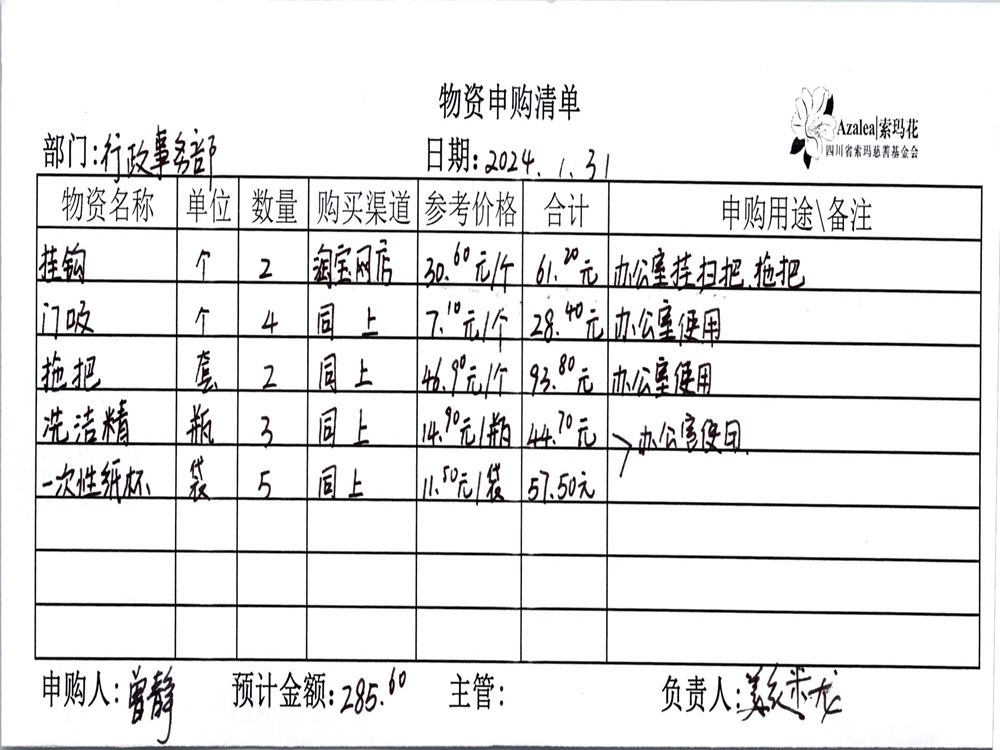 物资申购清单
Azalea|索玛花
四川省索玛慈善基金会
部门:行政事务部 日期:2024.1.31
物资名称 单位 数量 购买渠道 参考价格 合计 申购用途\备注
挂钩 个 2 淘宝网店 30.60元/个 61.20元 办公室挂扫把、拖把
门吸 个 4 同上 7.10元/个 28.40元 办公室使用
拖把 套 2 同上 46.90元/个 93.80元 办公室使用
洗洁精 瓶 3 同上 14.90元/瓶 44.70元 办公室使用.
一次性纸杯 袋 5 同上 11.50元/袋 57.50元
申购人:曾静 预计金额:285.60 主管: 负责人: